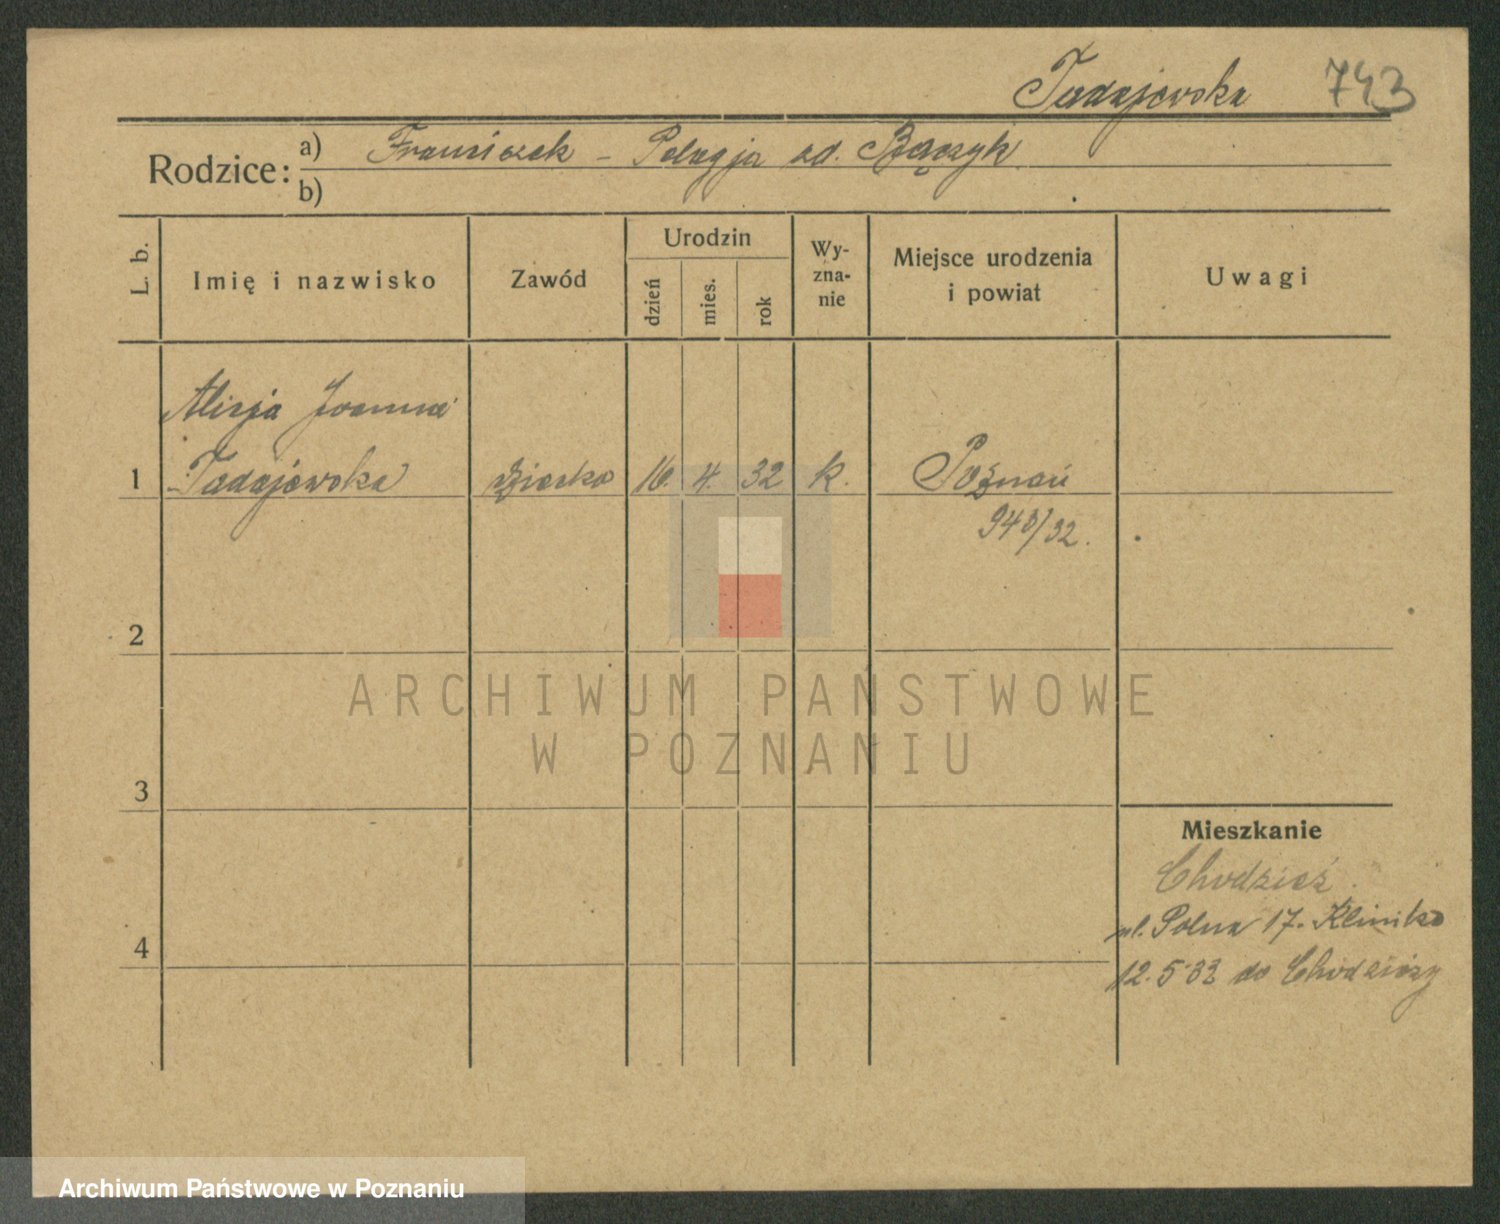 Tadajewska 743
Rodzice: a) Franciszek - Pelagja zd. Bączyk
b)
L. b.
Imię i nazwisko
Zawód
Urodzin
dzień
mies.
rok
Wy-
zna-
nie
Miejsce urodzenia
i powiat
Uwagi
Alicja Joanna
1 Tadajewska dziecko 16. 4. 32 k. Poznań
943/32.
2
3
4
Mieszkanie
Chodzież
ul. Polna 17. Klinika
12.5.32 do Chodzieży
ARCHIWUM PAŃSTWOWE
W POZNANIU
Archiwum Państwowe w Poznaniu